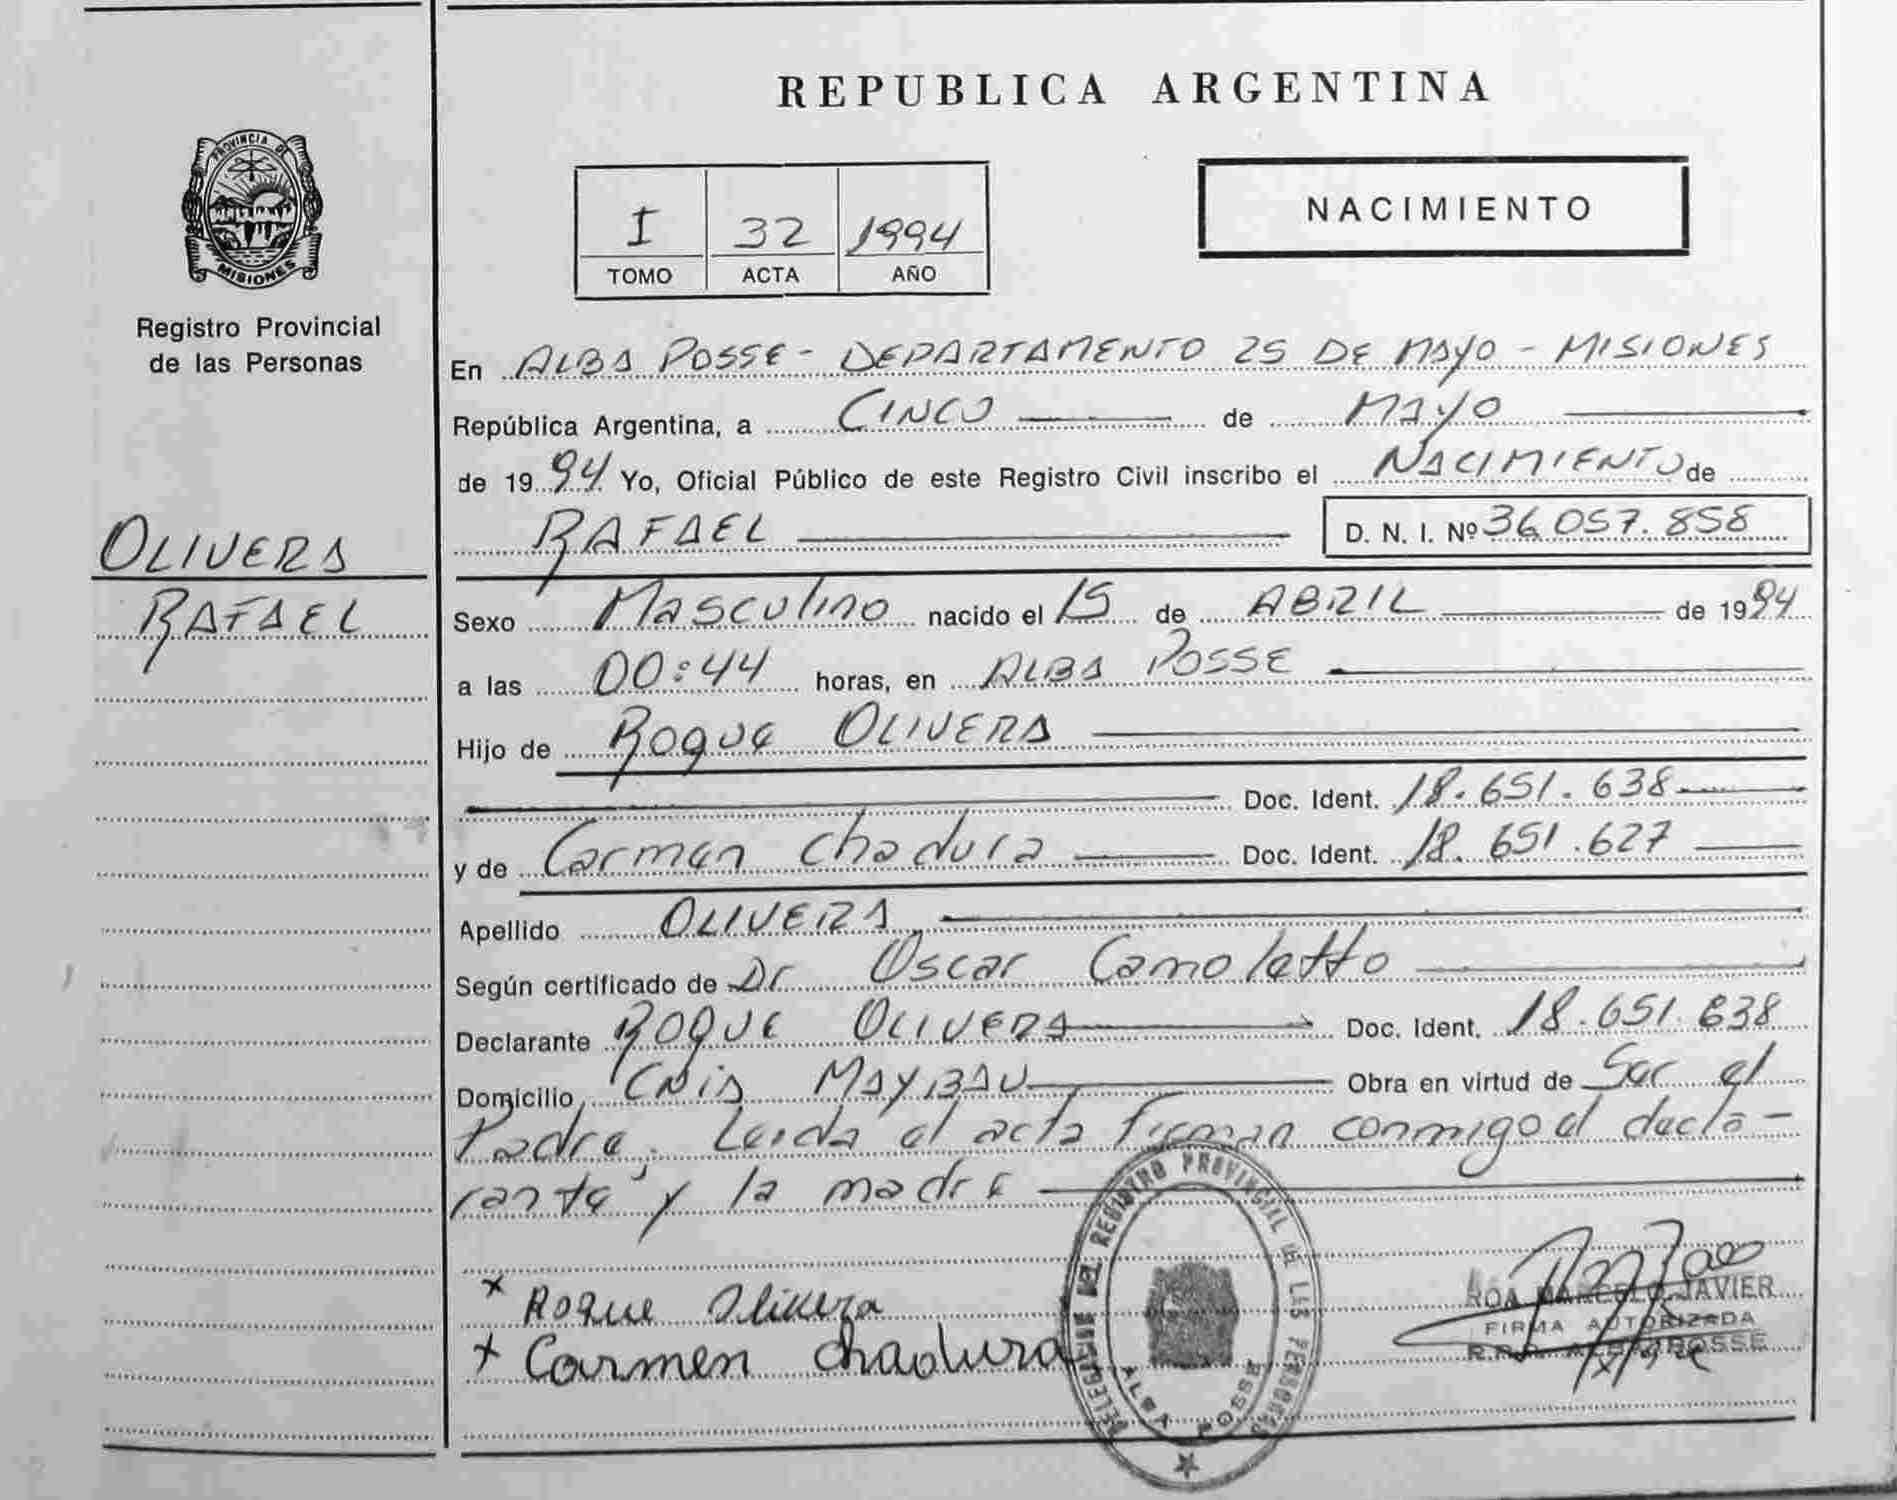 PROVINCIA DE
MISIONES
Registro Provincial
de las Personas
OLIVERA
RAFAEL
REPUBLICA ARGENTINA
I 32 1994
TOMO ACTA AÑO
NACIMIENTO
En ALBA POSSE - DEPARTAMENTO 25 DE MAYO - MISIONES
República Argentina, a CINCO de MAYO
de 1994 Yo, Oficial Público de este Registro Civil inscribo el NACIMIENTO de
RAFAEL D. N. I. Nº 36.057.858
Sexo Masculino nacido el 15 de ABRIL de 1994
a las 00:44 horas, en ALBA POSSE
Hijo de Roque OLIVERA
Doc. Ident. 18.651.638
y de Carmen Chadura Doc. Ident. 18.651.627
Apellido OLIVERA
Según certificado de Dr Oscar Camoletto
Declarante ROQUE OLIVERA Doc. Ident. 18.651.638
Domicilio CNIA MAYBAU Obra en virtud de Ser el
Padre, Leida el acta firman conmigo el decla-
rante y la madre
x Roque Olivera
x Carmen Chadura
DELEGACION DEL REGISTRO PROVINCIAL DE LAS PERSONAS
ALBA POSSE
ROA MARCELO JAVIER
FIRMA AUTORIZADA
R.P.P. ALBA POSSE